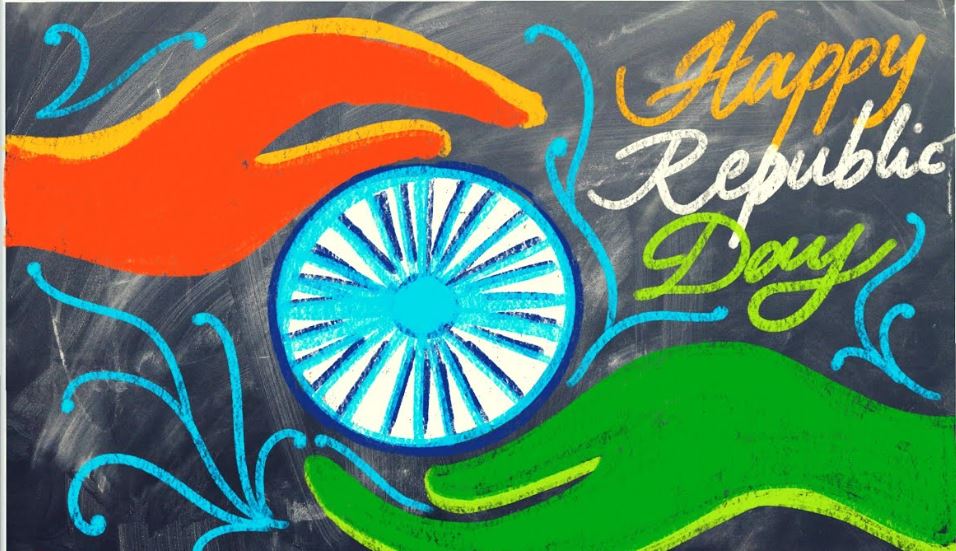 Happy
Republic
Day